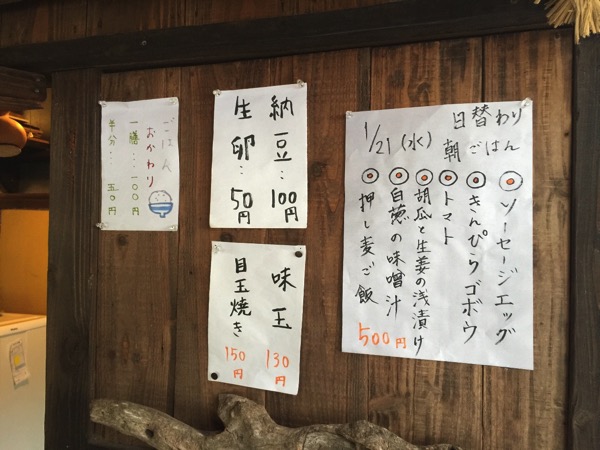 日替わり
朝ごはん
1/21(水)
◉ソーセージエッグ
◉きんぴらゴボウ
◉トマト
◉胡瓜と生姜の浅漬け
◉白葱の味噌汁
◉押し麦ご飯
500円
納豆:100円
生卵:50円
味玉 130円
目玉焼き 150円
ごはん
おかわり
一膳…一〇〇円
半分…五〇円